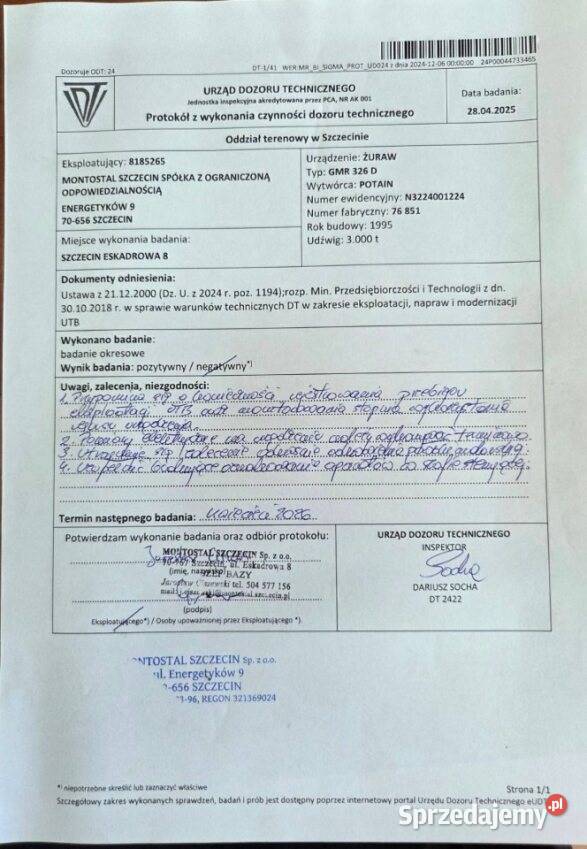 Dozoruje ODT: 24
DT-1/41 WER:MR_BI_SIGMA_PROT_UD024 z dnia 2024-12-06 00:00:00 24P00044733465
URZĄD DOZORU TECHNICZNEGO
Jednostka inspekcyjna akredytowana przez PCA, NR AK 001
Protokół z wykonania czynności dozoru technicznego
Data badania:
28.04.2025
Oddział terenowy w Szczecinie
Eksploatujący: 8185265
MONTOSTAL SZCZECIN SPÓŁKA Z OGRANICZONĄ
ODPOWIEDZIALNOŚCIĄ
ENERGETYKÓW 9
70-656 SZCZECIN
Miejsce wykonania badania:
SZCZECIN ESKADROWA 8
Urządzenie: ŻURAW
Typ: GMR 326 D
Wytwórca: POTAIN
Numer ewidencyjny: N3224001224
Numer fabryczny: 76 851
Rok budowy: 1995
Udźwig: 3.000 t
Dokumenty odniesienia:
Ustawa z 21.12.2000 (Dz. U. z 2024 r. poz. 1194);rozp. Min. Przedsiębiorczości i Technologii z dn.
30.10.2018 r. w sprawie warunków technicznych DT w zakresie eksploatacji, napraw i modernizacji
UTB
Wykonano badanie:
badanie okresowe
Wynik badania: pozytywny / negatywny*)
Uwagi, zalecenia, niezgodności:
1. Przypomina się o konieczności
eksploatacji UTB
2. Pomiary elektryczne
3.
4. Uzupełnić brakujące oznakowanie aparatów
Termin następnego badania: kwiecień 2026
Potwierdzam wykonanie badania oraz odbiór protokołu:
MONTOSTAL SZCZECIN Sp. z o.o.
70-767 Szczecin, ul. Eskadrowa 8
(imię, nazwisko)
SZEF BAZY
tel. 504 577 156
(podpis)
Eksploatującego*) / Osoby upoważnionej przez Eksploatującego *).
URZĄD DOZORU TECHNICZNEGO
INSPEKTOR
Socha
DARIUSZ SOCHA
DT 2422
ONTOSTAL SZCZECIN Sp. z o.o.
ul. Energetyków 9
-656 SZCZECIN
3-96, REGON 321369024
*) niepotrzebne skreślić lub zaznaczyć właściwe
Strona 1/1
Szczegółowy zakres wykonanych sprawdzeń, badań i prób jest dostępny poprzez internetowy portal Urzędu Dozoru Technicznego eUDT
Sprzedajemy.pl